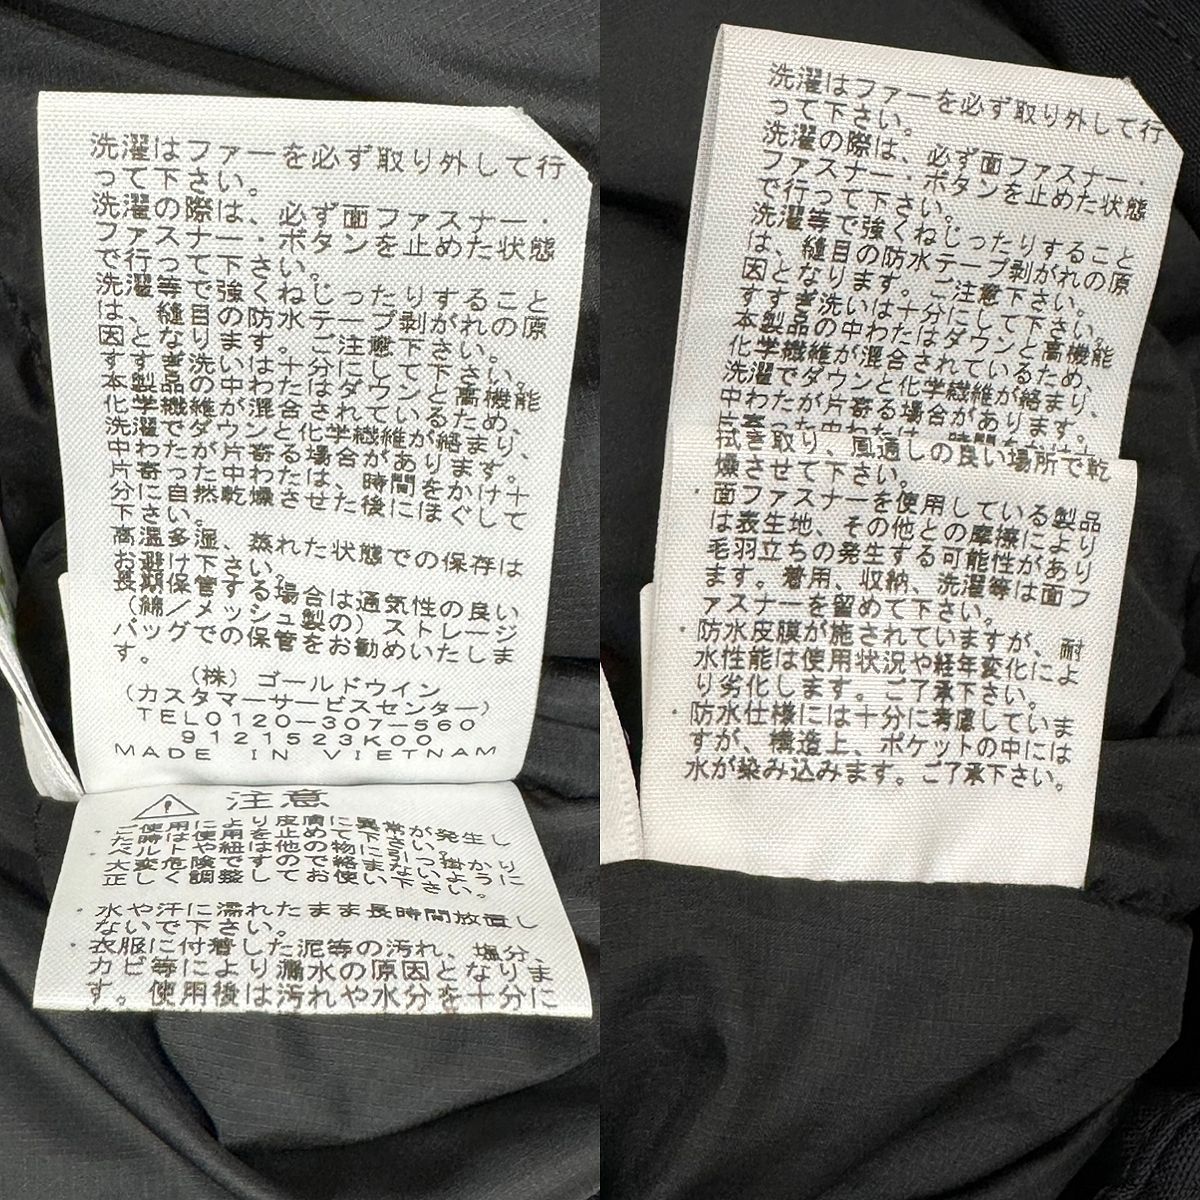 洗濯はファーを必ず取り外して行
って下さい。
洗濯の際は、必ず面ファスナー・
ファスナー・ボタンを止めた状態
で行って下さい。
洗濯等で強くねじったりすること
は、縫目の防水テープ剥がれの原
因となります。ご注意下さい。
すすぎ洗いは十分にして下さい。
本製品の中わたはダウンと高機能
化学繊維が混合されているため、
洗濯でダウンと化学繊維が絡まり、
中わたが片寄る場合があります。
片寄った中わたは、時間をかけ十
分に自然乾燥させた後にほぐして
下さい。
高温多湿、蒸れた状態での保存は
お避け下さい。
長期保管する場合は通気性の良い
（綿／メッシュ製の）ストレージ
バッグでの保管をお勧めいたしま
す。
（株）ゴールドウイン
（カスタマーサービスセンター）
TEL0120-307-560
9121523K00
MADE IN VIETNAM
注意
・ご使用により皮膚に異常が発生し
た時は使用を止めて下さい。
・ベルトや紐は他の物に引っ掛かり
大変危険ですので絡まないように
正しく調整してお使い下さい。
・水や汗に濡れたまま長時間放置し
ないで下さい。
・衣服に付着した泥等の汚れ、塩分、
カビ等により漏水の原因となりま
す。使用後は汚れや水分を十分に
洗濯はファーを必ず取り外して行
って下さい。
洗濯の際は、必ず面ファスナー・
ファスナー・ボタンを止めた状態
で行って下さい。
洗濯等で強くねじったりすること
は、縫目の防水テープ剥がれの原
因となります。ご注意下さい。
すすぎ洗いは十分にして下さい。
本製品の中わたはダウンと高機能
化学繊維が混合されているため、
洗濯でダウンと化学繊維が絡まり、
中わたが片寄る場合があります。
拭き取り、風通しの良い場所で乾
燥させて下さい。
・面ファスナーを使用している製品
は表生地、その他との摩擦により
毛羽立ちの発生する可能性があり
ます。着用、収納、洗濯等は面フ
ァスナーを留めて下さい。
・防水皮膜が施されていますが、耐
水性能は使用状況や経年変化によ
り劣化します。ご了承下さい。
・防水仕様には十分に考慮していま
すが、構造上、ポケットの中には
水が染み込みます。ご了承下さい。